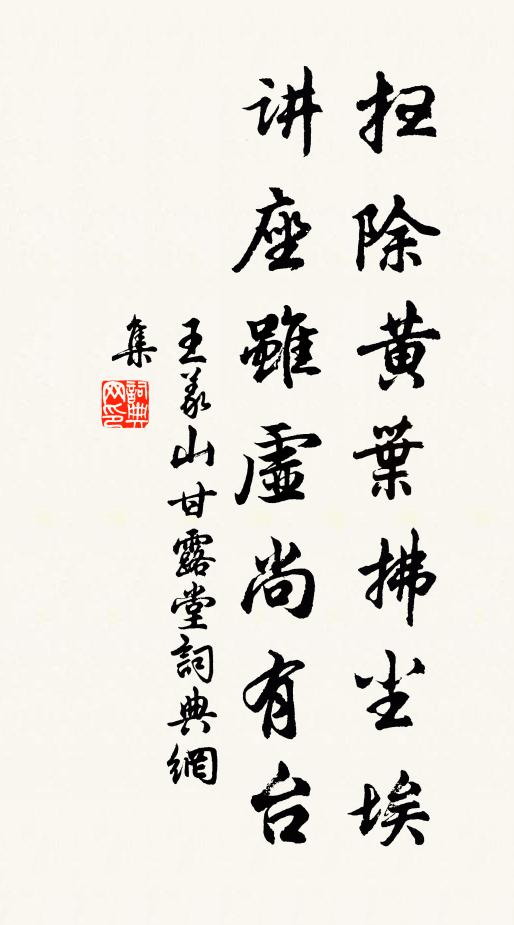 扫除黄葉拂尘埃
讲座雖虚尚有台
王义山甘露堂詞典網
集
詞典網印